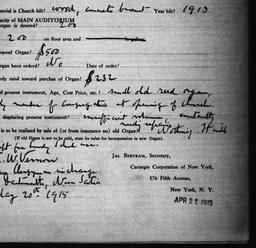 aterial is Church bilt? wood, concrete basement Year bilt? 1913
pacity of MAIN AUDITORIUM
rgan is desired? 200
200 on floor area and
repozed Organ? $500
rgan been orderd? No Date of order?
dy raized toward purchas of Organ? $232
d present instrument, Age, Cost Price, etc.? small old reed organ,
by member of Congregation at opening of church
displacing present instrument? insufficient volume constantly
needs repairing
is to be realized by sale of (or from insurance on) old Organ? Nothing. It will
(If old Organ is not to be sold, state its value for incorporation in new Organ).
left for Sunday School use.
W. Vernon
Clergyman in charge
Dartmouth, Nova Scotia
May 20th 1915
JAS BERTRAM, Secretary,
Carnegie Corporation of New York,
576 Fifth Avenue,
New York, N. Y.
APR 22 1915